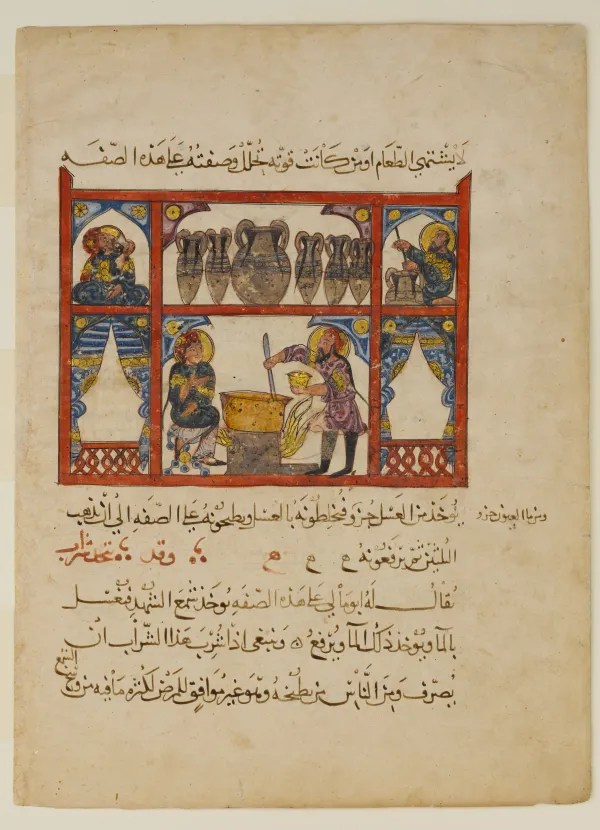 لا يشتهي الطعام او من كانت قوته تحلل وصفته على هذه الصفه
يوخذ من العسل جزو فيخلطونه بالعسل ويطبخونه على الصفه الى ان يذهب
ومن ما العيون جزو
ثم يرفعونه ه ه ه وقد يتخذ شراب
يقال له ابومالي على هذه الصفه يوخذ شمع الشهد فيغسل
بالما ويوخذ ذلك الما ويرفع وينبغي اذا شرب هذا الشراب ان
يصرف ومن الناس من يطبخه وهو غير موافق للمرضى لكثره ما فيه من وسخ
الشمع